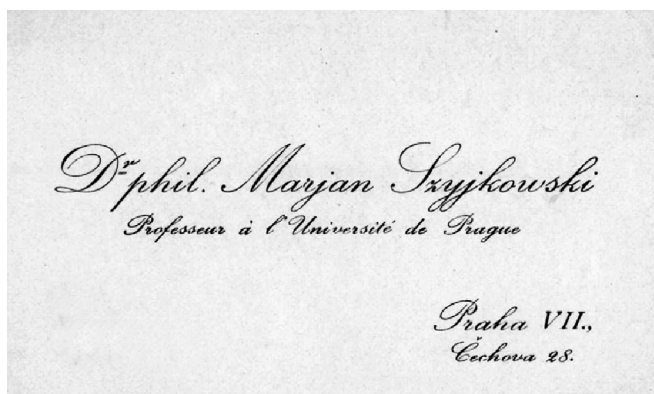 Dr phil. Marjan Szyjkowski
Professeur à l'Université de Prague
Praha VII.,
Čechova 28.